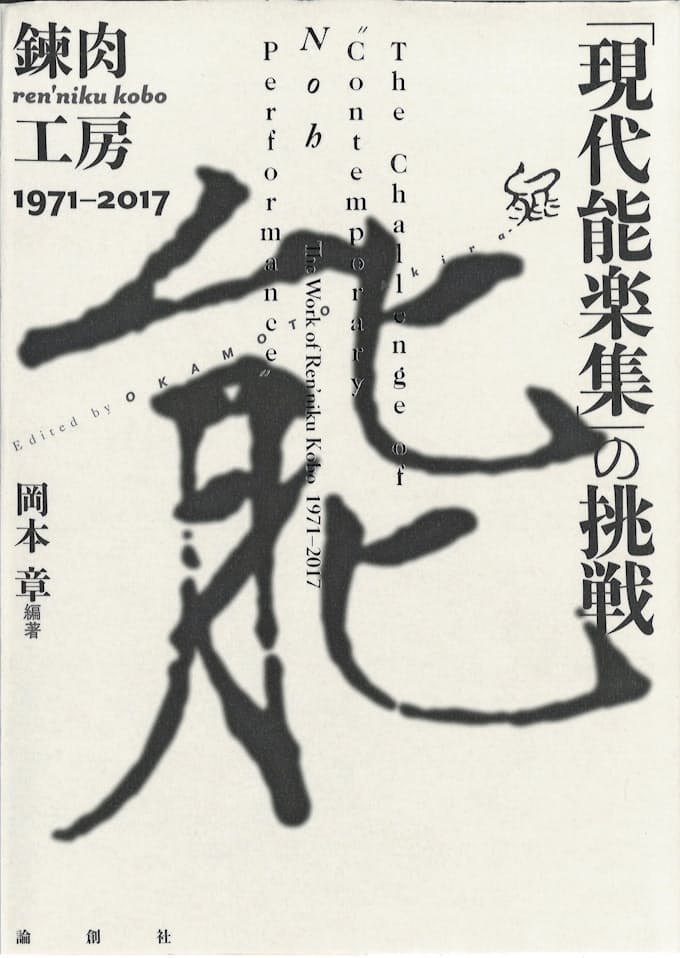 「現代能楽集」の挑戦
The Challenge of
"Contemporary
Noh
Performance"
The Work of Ren'niku Kobo 1971–2017
錬肉
ren'niku kobo
工房
1971–2017
能
Edited by OKAMOTO Akira
岡本 章 編著
論創社